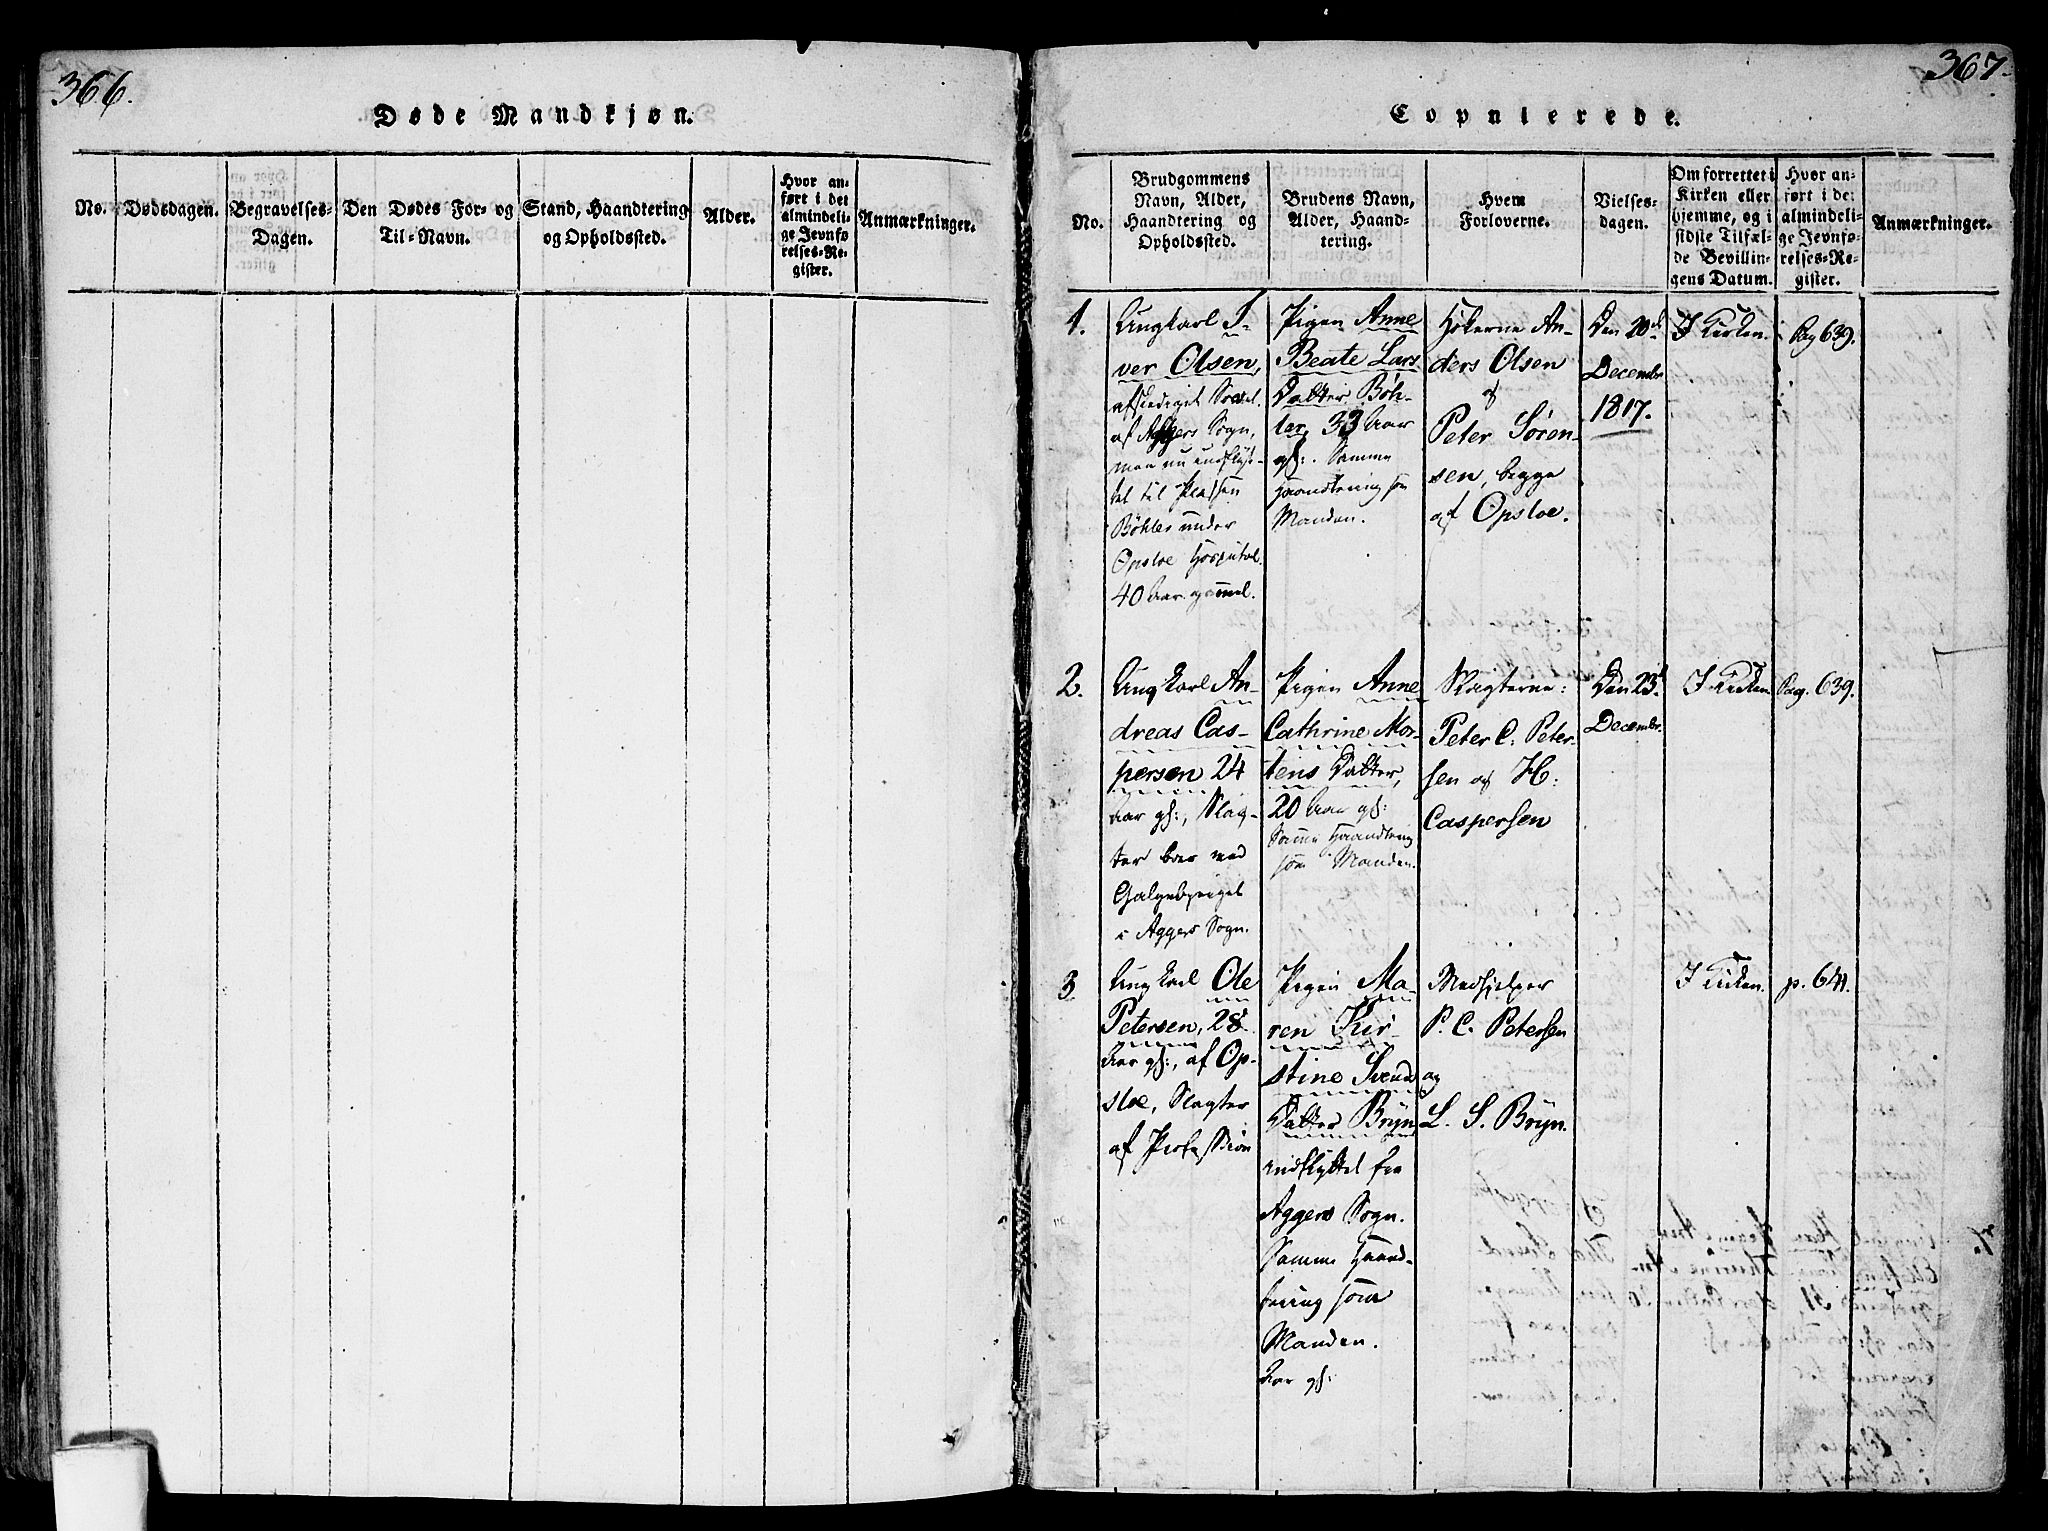 366.
Døde Mandkjøn.
No.
Dødsdagen.
Begravelses-
Dagen.
Den Dødes For- og
Til-Navn.
Stand, Haandtering
og Opholdssted.
Alder.
Hvor an-
ført i det
almindeli-
ge Jevnfø
relses-Re-
gister.
Anmærkninger.
367.
Copulerede.
No.
Brudgommens
Navn, Alder,
Haandtering og
Opholdssted.
Brudens Navn,
Alder, Haand-
tering.
Hvem
Forloverne.
Vielses-
dagen.
Om forrettet i
Kirken eller
hjemme, og i
sidste Tilfæl-
de Bevillin-
gens Datum.
Hvor an-
ført i det
almindeli-
ge Jevnfø-
relses-Re-
gister.
Anmærkninger.
1.
Ungkarl I-
ver Olsen,
afskediget Soldat
af Aggers Sogn,
men nu indflyt-
tet til Pladsen
Bøhler under
Opsloe Hospital.
40 Aar gammel.
Pigen Anne
Beate Lars
Datter Bøh-
ler, 33 Aar
gl:. Samme
Haandtering som
Manden.
Hökerne An-
ders Olsen
og
Peter Søren-
sen, begge
af Opsloe.
Den 20de
December
1817.
I Kirken.
Pag 639.
2.
Ungkarl An-
dreas Cas-
persen 24
Aar gl:, Slag-
ter boer ved
Galgebjerget
i Aggers Sogn.
Pigen Anne
Cathrine Mor-
tens Datter,
20 Aar gl:
Samme Haandtering
som Manden.
Slagterne:
Peter C. Peter-
sen og H:
Caspersen
Den 23d
December.
I Kirken
Pag. 639.
3
Ungkarl Ole
Petersen, 28
Aar gl:, af Op-
sloe, Slagter
af Profession
Pigen Ma-
ren Kir-
stine Svends
Datter Bryn
indflyttet fra
Aggers Sogn.
Samme Haand-
tering som
Manden.
Aar gl:
Medhjelper
P. C. Petersen
og
L. S. Bryn.
I Kirken.
p. 641.